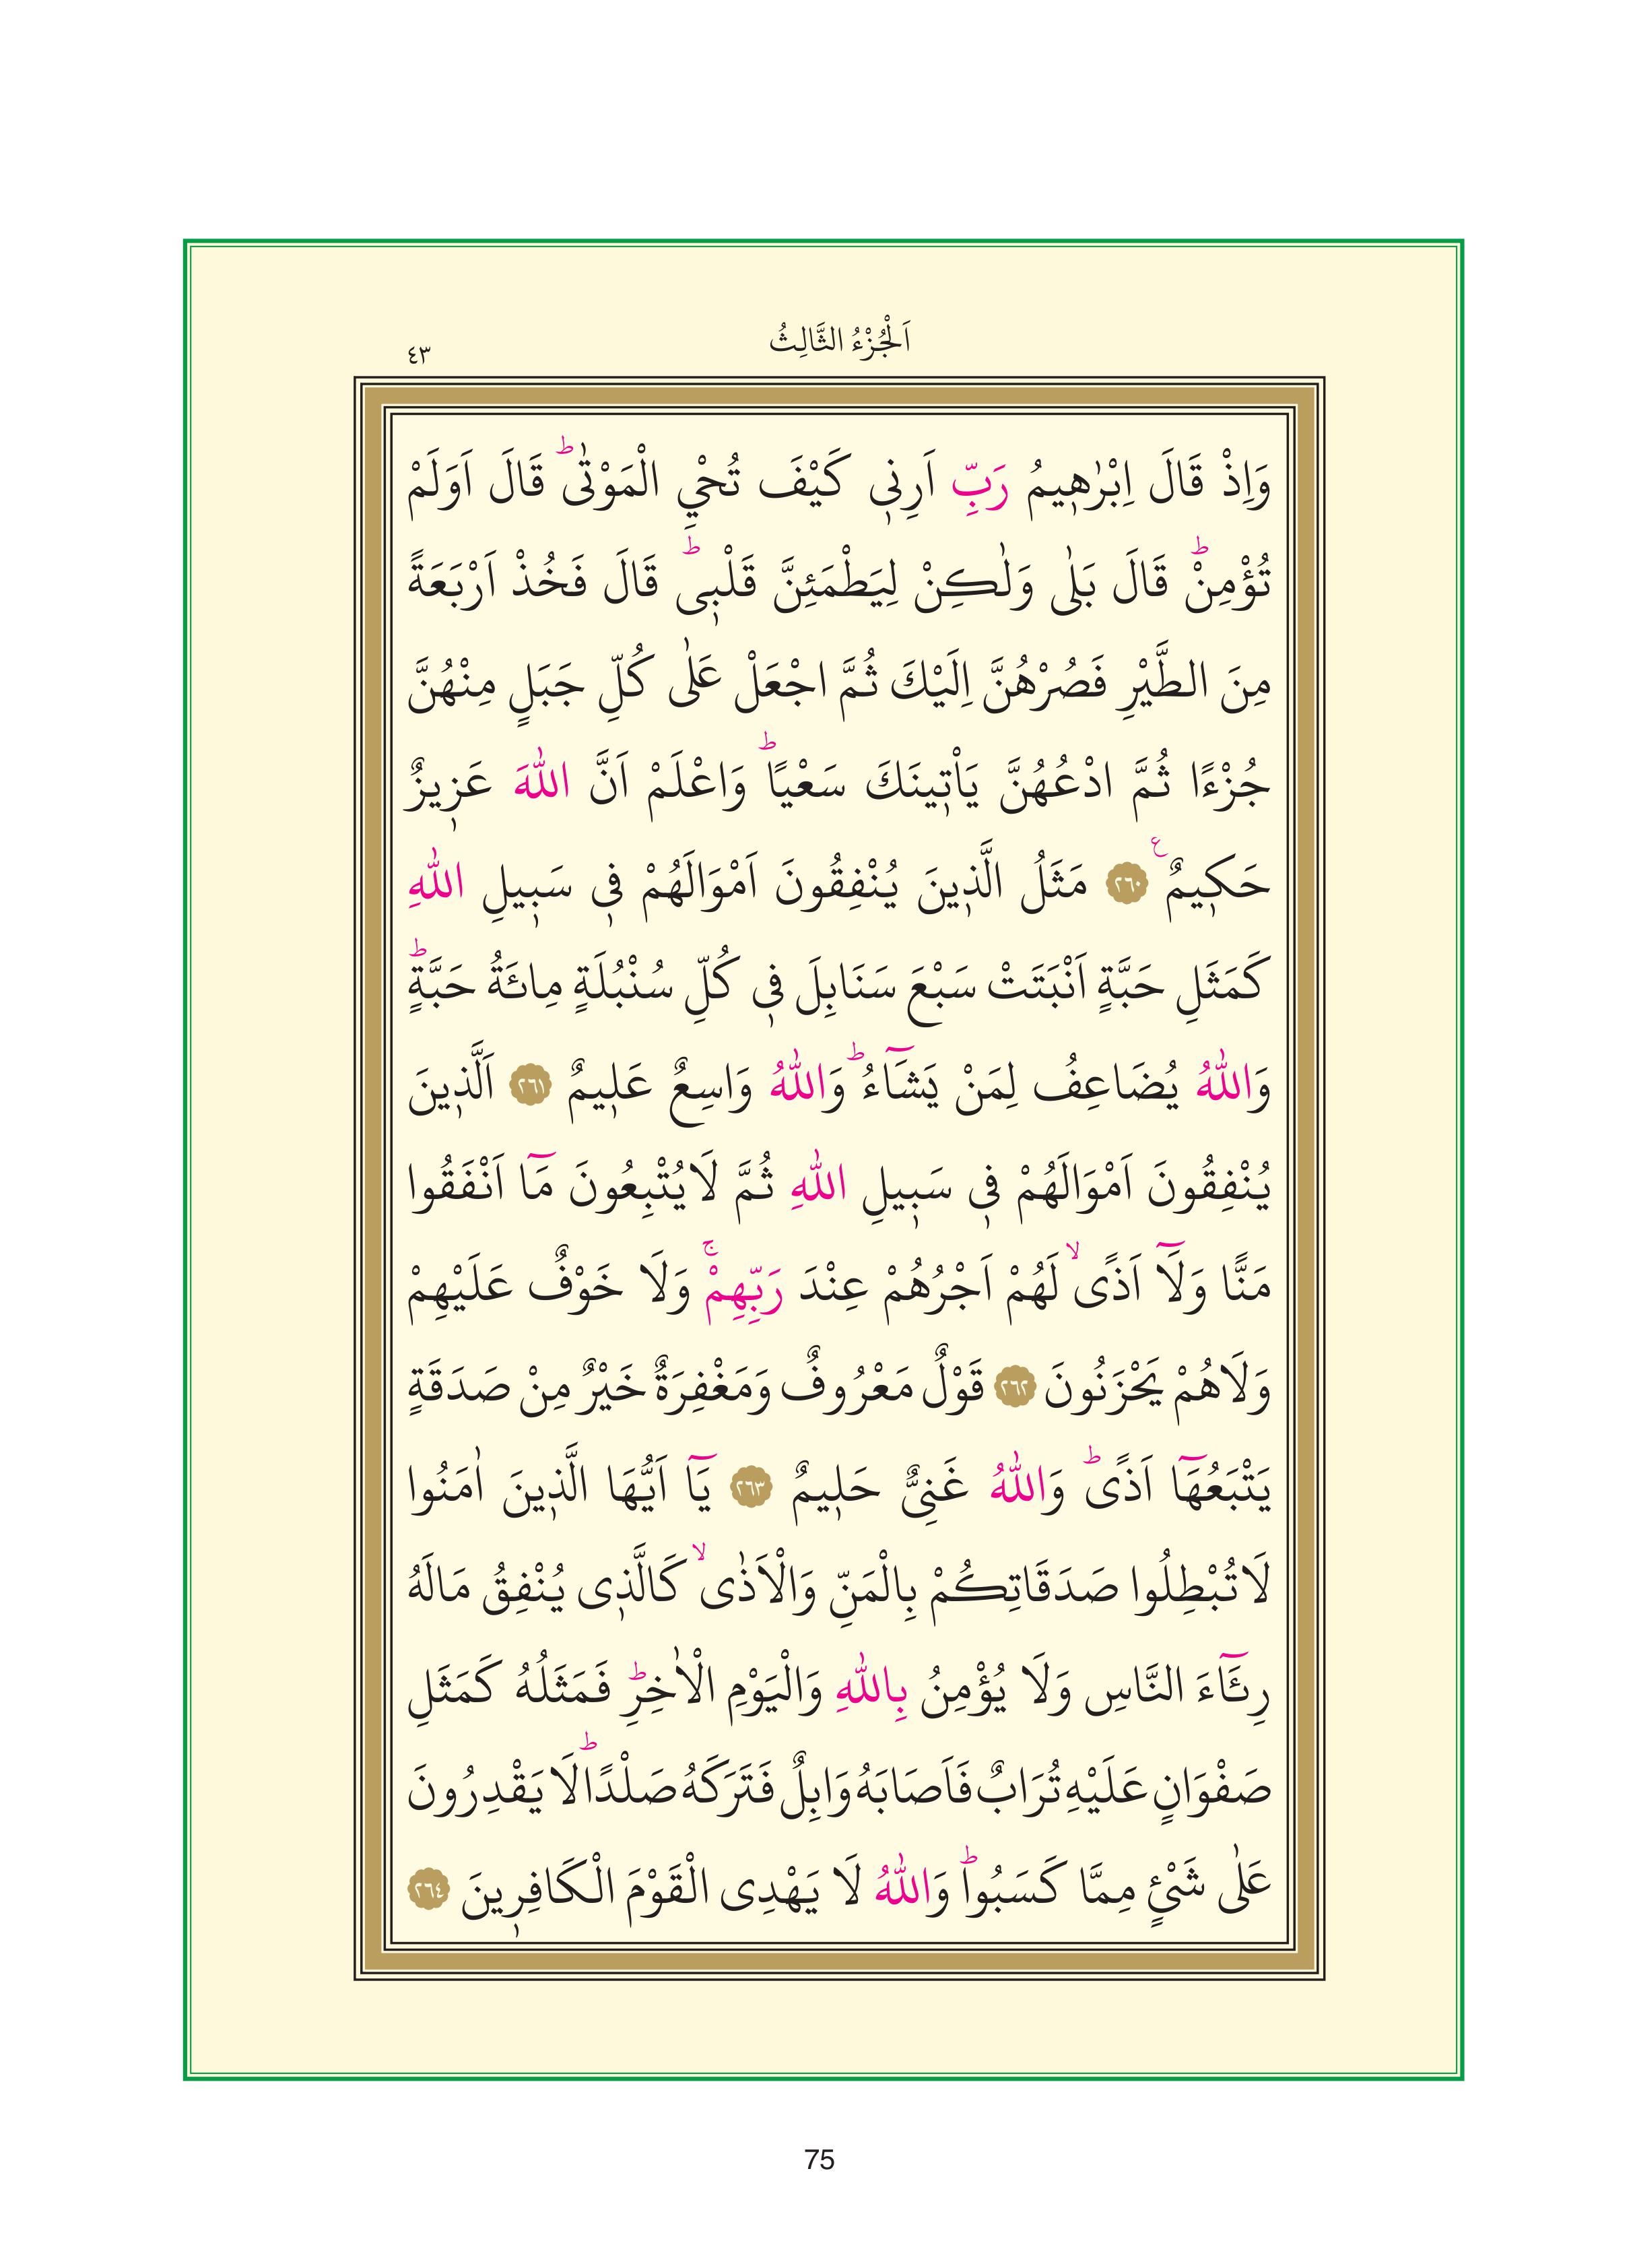 اَلْجُزْءُ الثَّالِثُ
٤٣
وَاِذْ قَالَ اِبْرٰهٖيمُ رَبِّ اَرِنٖى كَيْفَ تُحْيِ الْمَوْتٰىؕ قَالَ اَوَلَمْ
تُؤْمِنْؕ قَالَ بَلٰى وَلٰكِنْ لِيَطْمَئِنَّ قَلْبٖىؕ قَالَ فَخُذْ اَرْبَعَةً
مِنَ الطَّيْرِ فَصُرْهُنَّ اِلَيْكَ ثُمَّ اجْعَلْ عَلٰى كُلِّ جَبَلٍ مِنْهُنَّ
جُزْءًا ثُمَّ ادْعُهُنَّ يَاْتٖينَكَ سَعْيًاؕ وَاعْلَمْ اَنَّ اللّٰهَ عَزٖيزٌ
حَكٖيمٌ ع ٢٦٠ مَثَلُ الَّذٖينَ يُنْفِقُونَ اَمْوَالَهُمْ فٖى سَبٖيلِ اللّٰهِ
كَمَثَلِ حَبَّةٍ اَنْبَتَتْ سَبْعَ سَنَابِلَ فٖى كُلِّ سُنْبُلَةٍ مِائَةُ حَبَّةٍؕ
وَاللّٰهُ يُضَاعِفُ لِمَنْ يَشَٓاءُؕ وَاللّٰهُ وَاسِعٌ عَلٖيمٌ ٢٦١ اَلَّذٖينَ
يُنْفِقُونَ اَمْوَالَهُمْ فٖى سَبٖيلِ اللّٰهِ ثُمَّ لَا يُتْبِعُونَ مَٓا اَنْفَقُوا
مَنًّا وَلَٓا اَذًىۙ لَهُمْ اَجْرُهُمْ عِنْدَ رَبِّهِمْۚ وَلَا خَوْفٌ عَلَيْهِمْ
وَلَا هُمْ يَحْزَنُونَ ٢٦٢ قَوْلٌ مَعْرُوفٌ وَمَغْفِرَةٌ خَيْرٌ مِنْ صَدَقَةٍ
يَتْبَعُهَٓا اَذًىؕ وَاللّٰهُ غَنِىٌّ حَلٖيمٌ ٢٦٣ يَٓا اَيُّهَا الَّذٖينَ اٰمَنُوا
لَا تُبْطِلُوا صَدَقَاتِكُمْ بِالْمَنِّ وَالْاَذٰىۙ كَالَّذٖى يُنْفِقُ مَالَهُ
رِئَٓاءَ النَّاسِ وَلَا يُؤْمِنُ بِاللّٰهِ وَالْيَوْمِ الْاٰخِرِؕ فَمَثَلُهُ كَمَثَلِ
صَفْوَانٍ عَلَيْهِ تُرَابٌ فَاَصَابَهُ وَابِلٌ فَتَرَكَهُ صَلْدًاؕ لَا يَقْدِرُونَ
عَلٰى شَىْءٍ مِمَّا كَسَبُواؕ وَاللّٰهُ لَا يَهْدِى الْقَوْمَ الْكَافِرٖينَ ٢٦٤
75